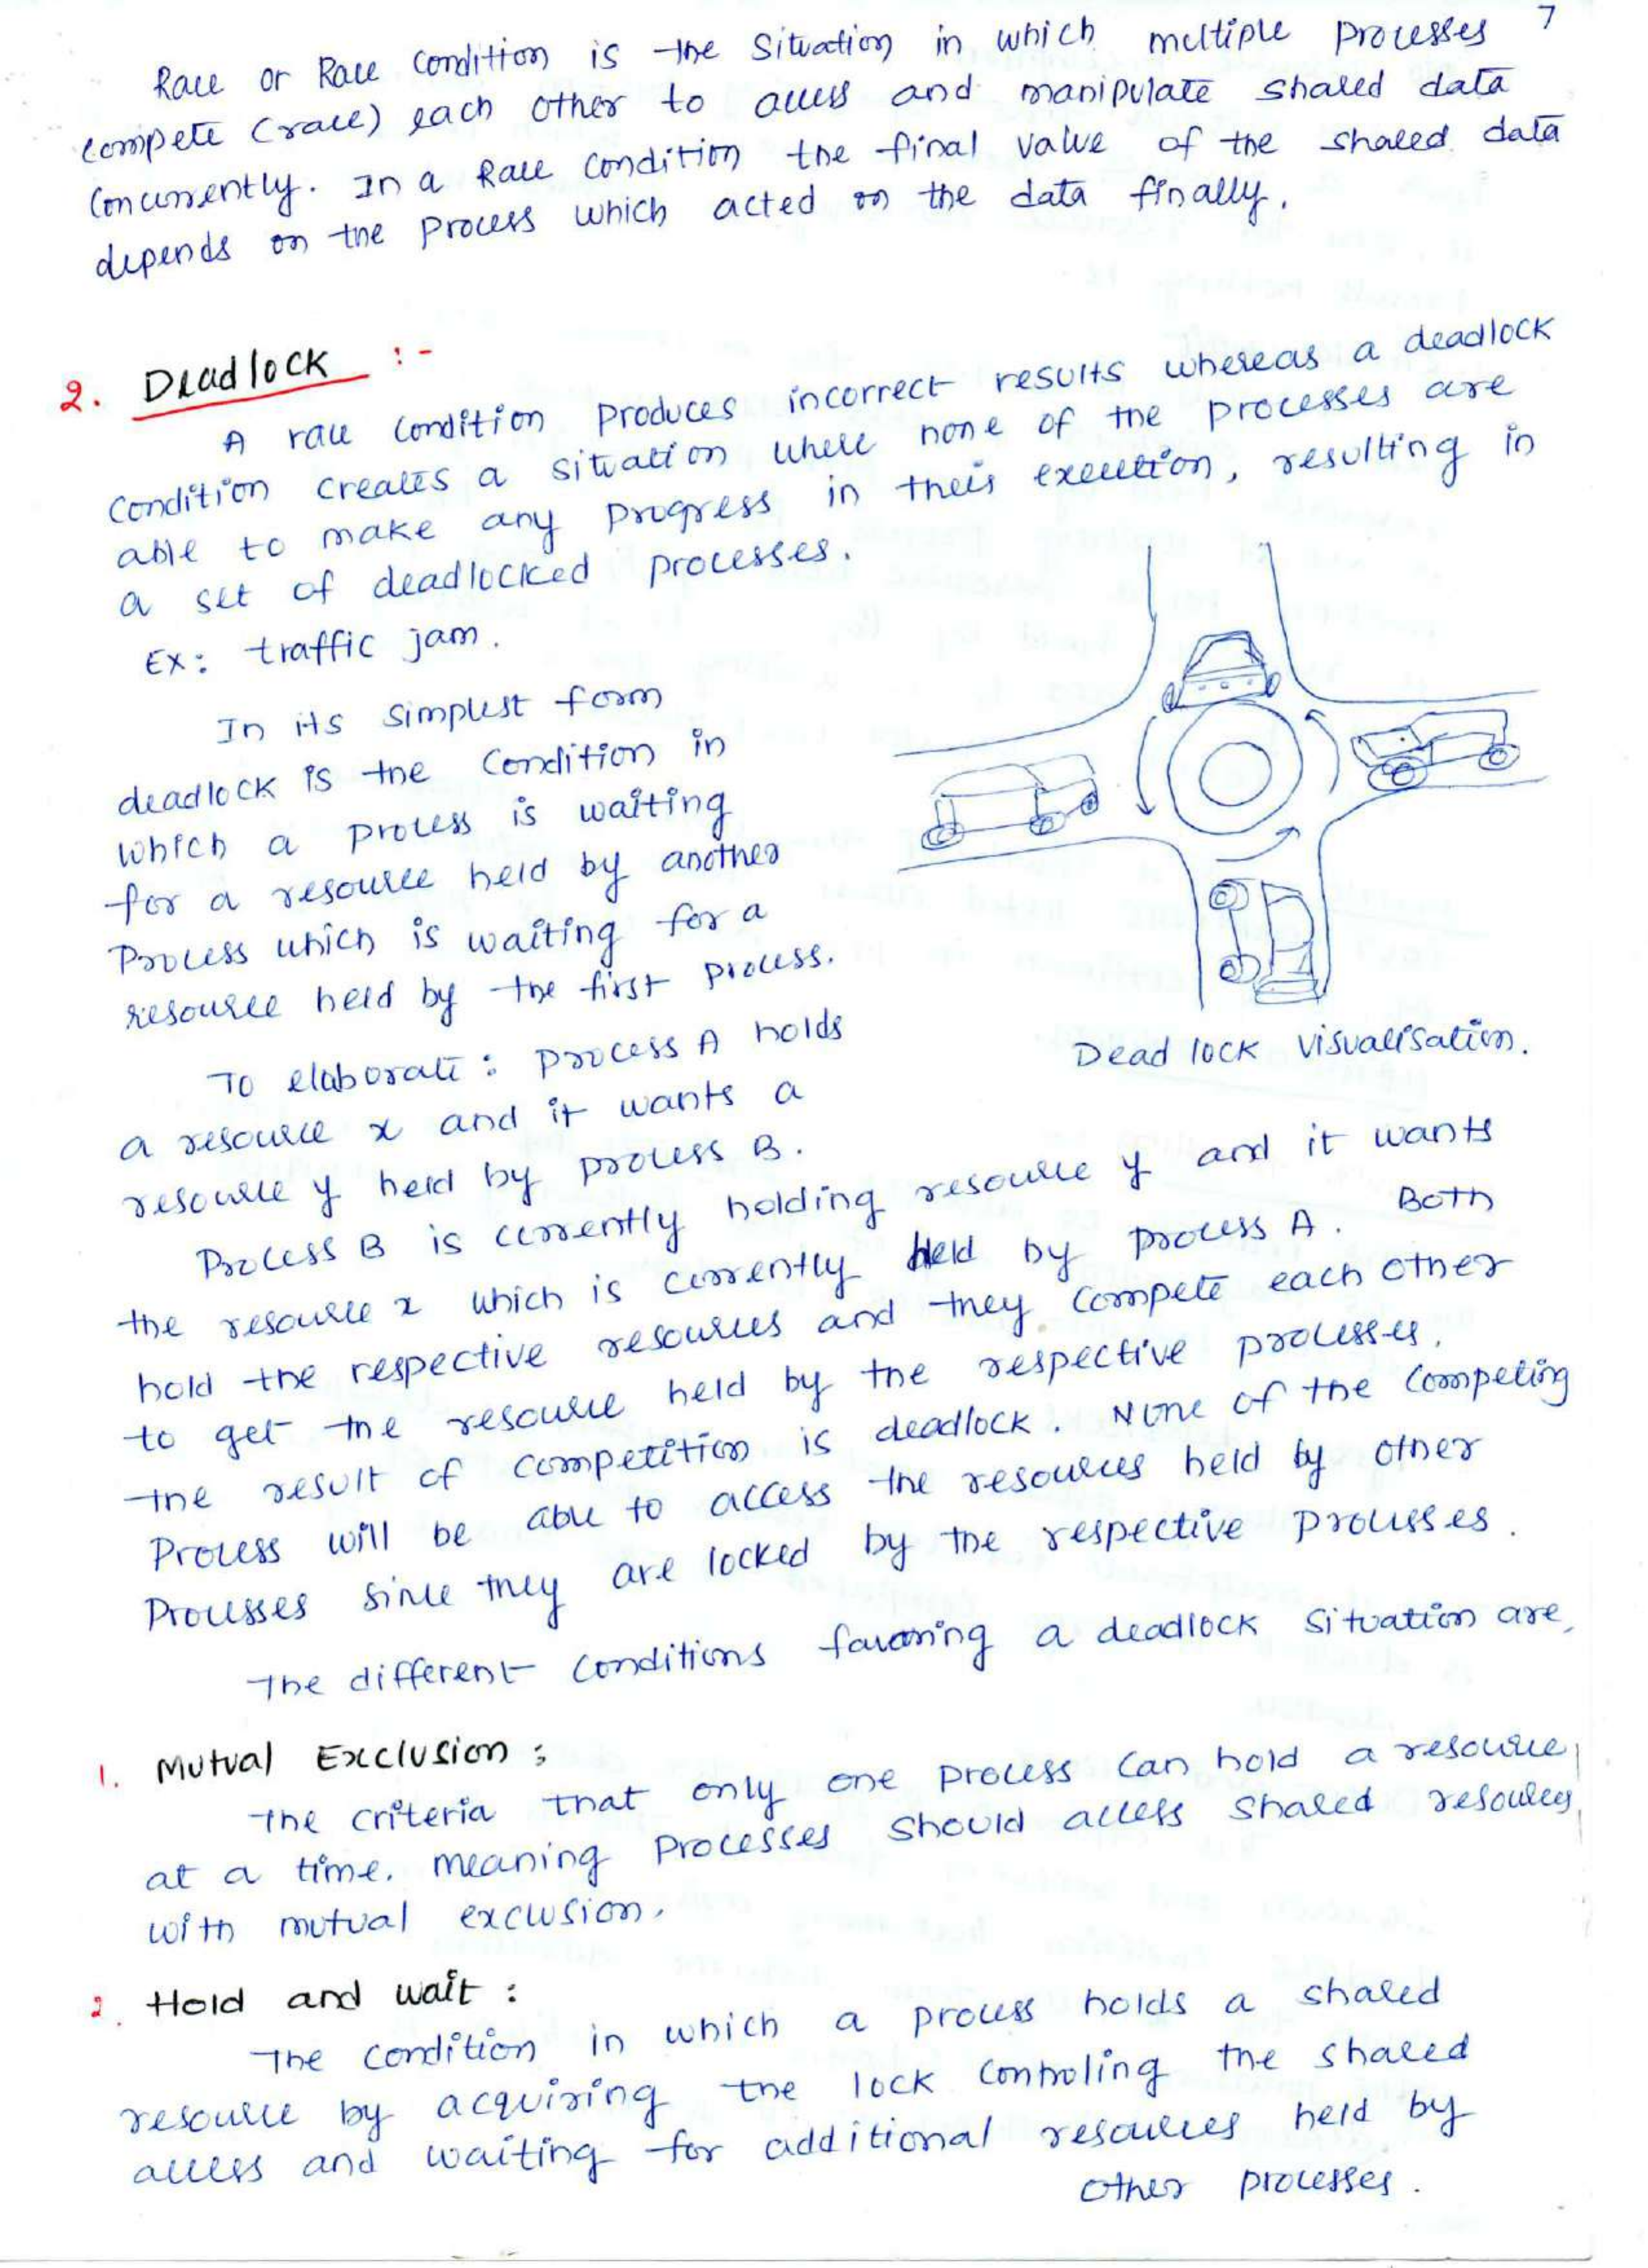 7
Race or Race Condition is the situation in which multiple processes
compete (race) each other to access and manipulate shared data
Concurrently. In a Race Condition the final value of the shared data
depends on the process which acted on the data finally.
2. Deadlock :-
A race condition produces incorrect results whereas a deadlock
condition creates a situation where none of the processes are
able to make any progress in their execution, resulting in
a set of deadlocked processes.
Ex: traffic jam.
In its simplest form
deadlock is the condition in
which a process is waiting
for a resource held by another
Process which is waiting for a
resource held by the first process.
Dead lock visualisation.
To elaborate: process A holds
a resource x and it wants a
resource y held by process B.
Process B is currently holding resource y and it wants
the resource x which is currently held by process A. Both
hold the respective resources and they compete each other
to get the resource held by the respective processes.
The result of competition is deadlock. None of the competing
Process will be able to access the resources held by other
Processes since they are locked by the respective processes.
The different conditions favoring a deadlock situation are,
1. Mutual Exclusion :
The criteria that only one process can hold a resource
at a time. meaning processes should access shared resources
with mutual exclusion.
2. Hold and wait :
The condition in which a process holds a shared
resource by acquiring the lock controling the shared
access and waiting for additional resources held by
other processes.